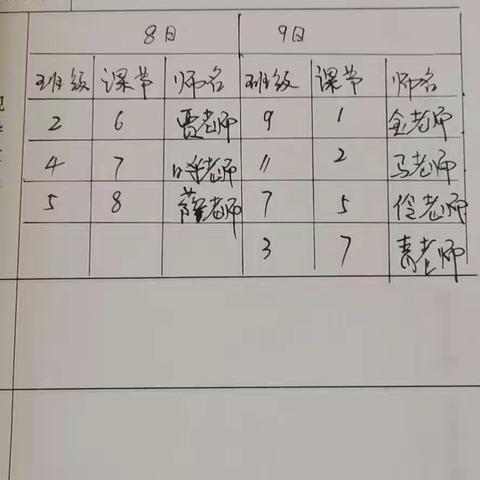 8日 9日
班级 课节 师名 班级 课节 师名
2 6 贾老师 9 1 金老师
4 7 老师 11 2 马老师
5 8 薛老师 7 5 伶老师
3 7 青老师